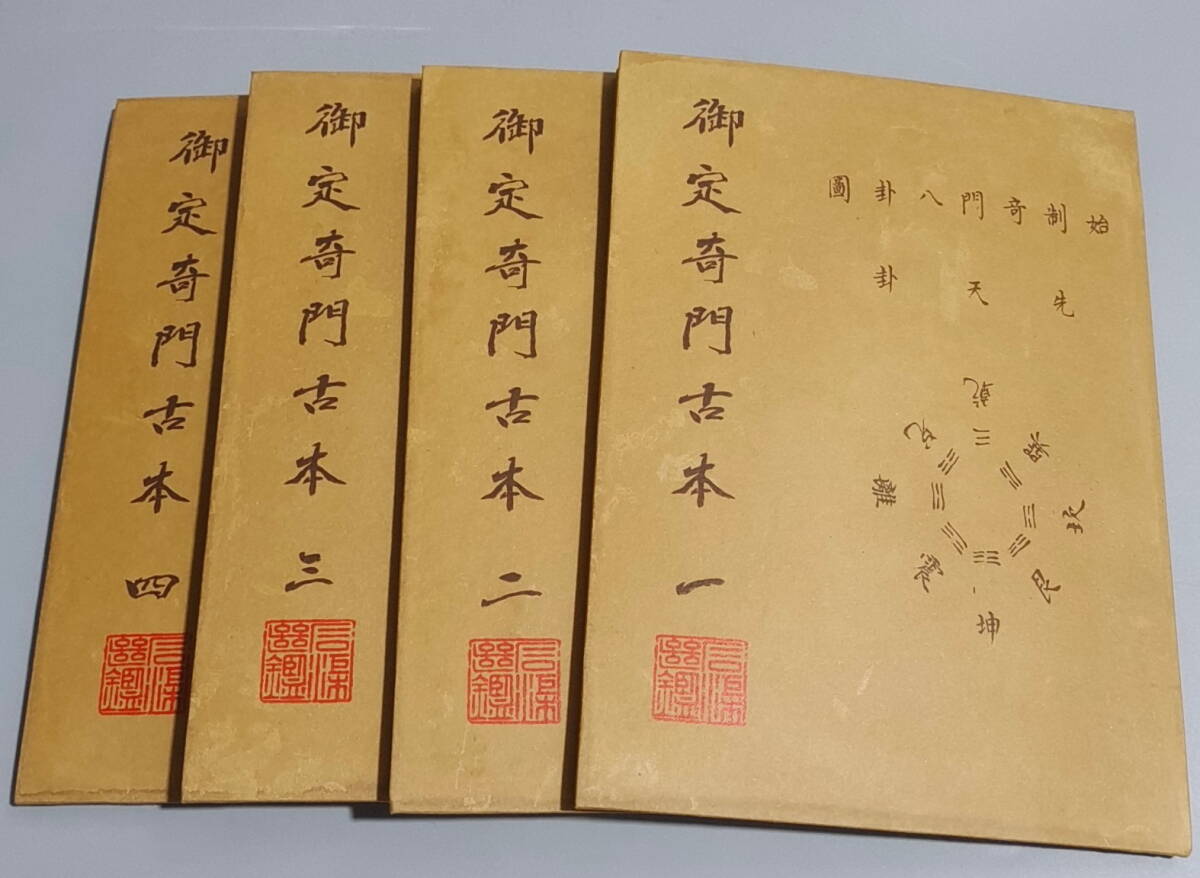 始制奇門八卦圖
先天卦
乾
兌
巽
離
坎
震
艮
坤
御定奇門古本 一
御定奇門古本 二
御定奇門古本 三
御定奇門古本 四